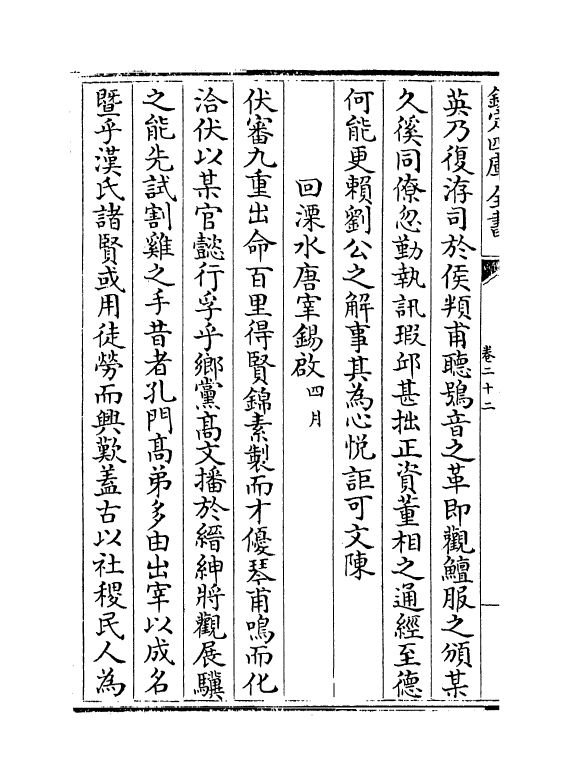 欽定四庫全書
卷二十二
英乃復洊司於侯頖甫聽鴞音之革即觀鱣服之頒某
久徯同僚忽勤執訊瑕邱甚拙正資董相之通經至德
何能更賴劉公之解事其為心悦詎可文陳
回溧水唐宰錫啟四月
伏審九重出命百里得賢錦素製而才優琴甫鳴而化
洽伏以某官懿行孚乎鄉黨髙文播於縉紳將觀展驥
之能先試割雞之手昔者孔門髙弟多由出宰以成名
暨乎漢氏諸賢或用徒勞而興歎蓋古以社稷民人為